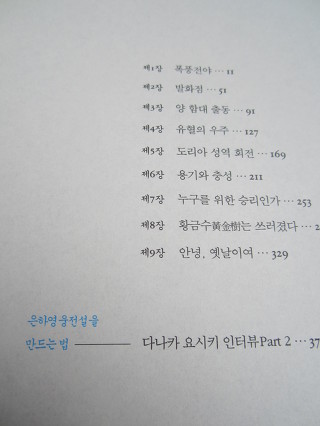 제1장 폭풍전야 … 11
제2장 발화점 … 51
제3장 양 함대 출동 … 91
제4장 유혈의 우주 … 127
제5장 도리아 성역 회전 … 169
제6장 용기와 충성 … 211
제7장 누구를 위한 승리인가 … 253
제8장 황금수黃金樹는 쓰러졌다 …
제9장 안녕, 옛날이여 … 329
은하영웅전설을
만드는 법 ——— 다나카 요시키 인터뷰Part 2 … 37